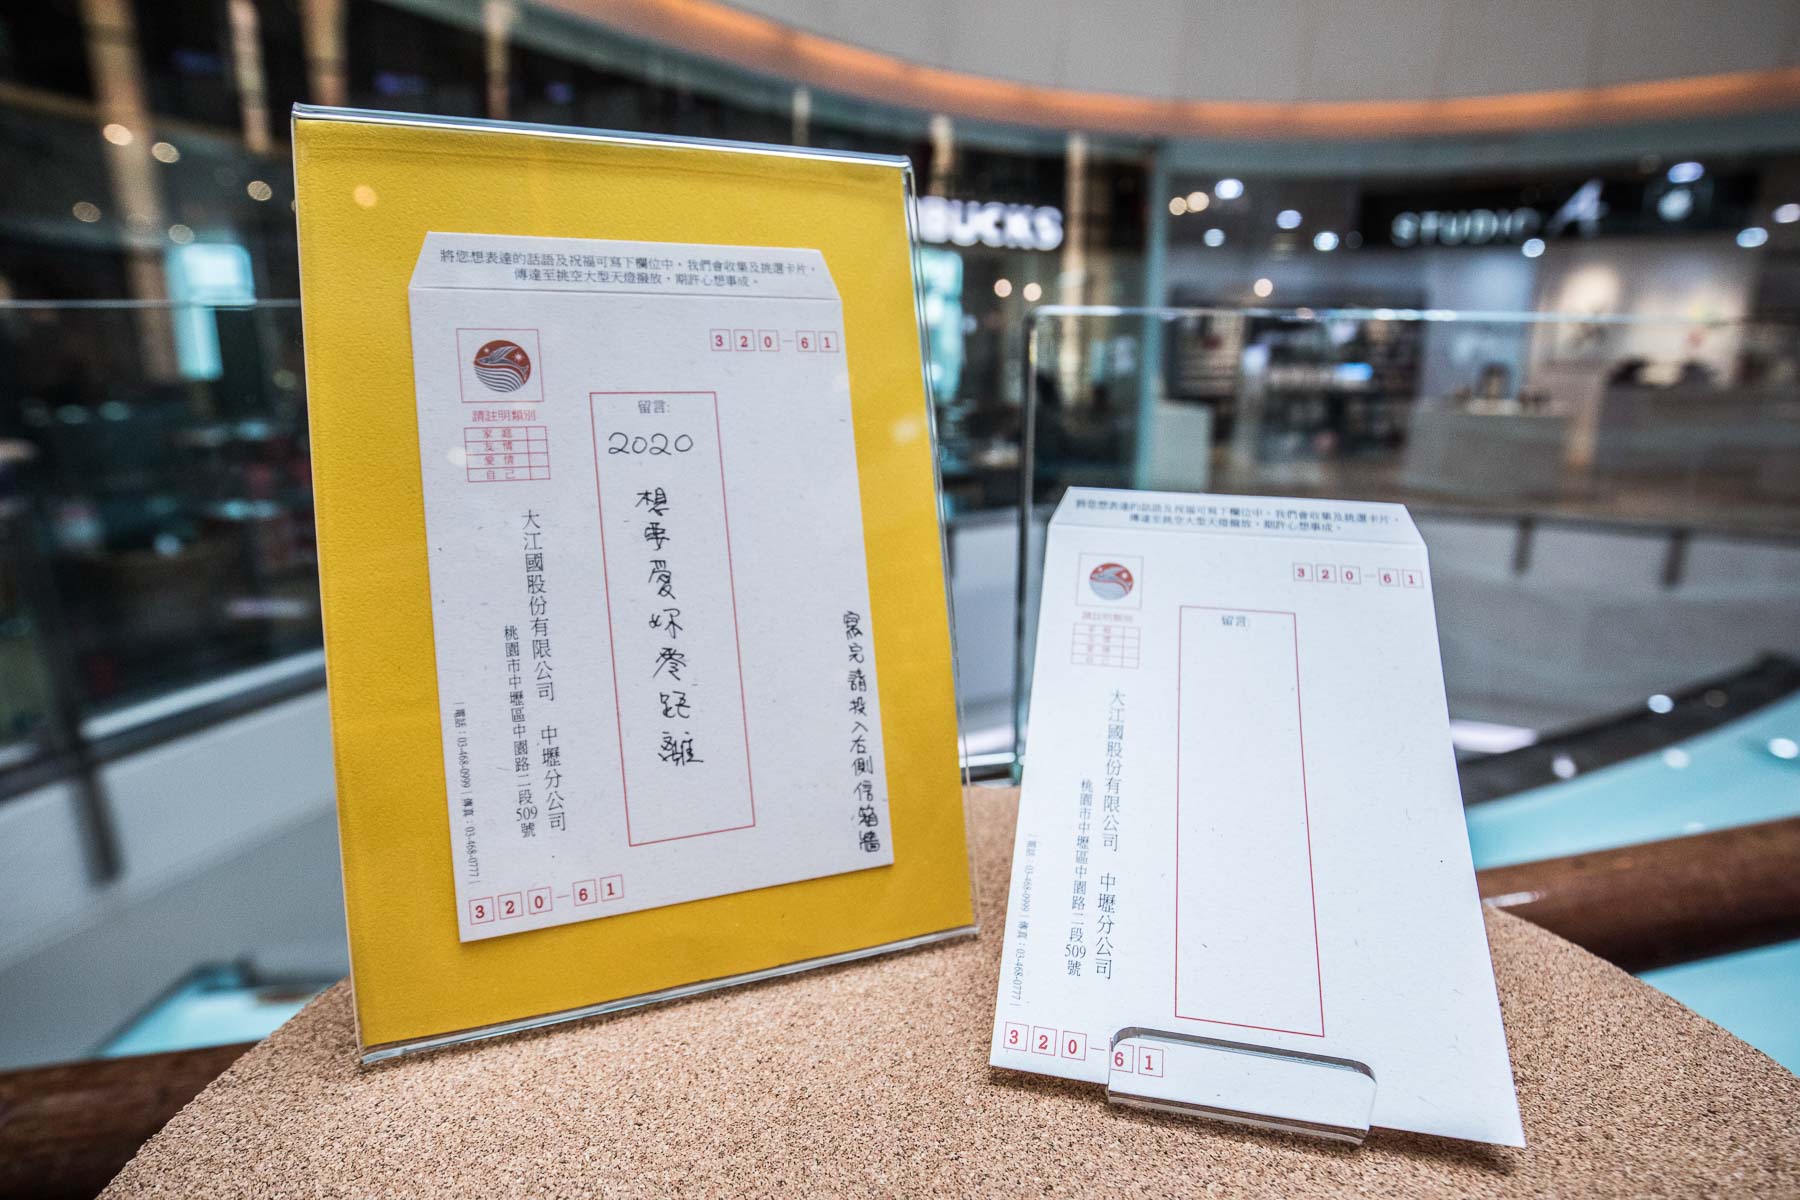 將您想表達的話語及祝福可寫下欄位中，我們會收集及挑選卡片，
傳達至挑空大型天燈撥放，期許心想事成。
320-61
請註明類別
家庭
友情
愛情
自己
留言:
2020
想要愛妳零距離
寫完請投入右側信箱牆
大江國股份有限公司 中壢分公司
桃園市中壢區中園路二段509號
｜電話：03-468-0999｜傳真：03-468-0777｜
320-61
BUCKS
STUDIO A
將您想表達的話語及祝福可寫下欄位中，我們會收集及挑選卡片，
傳達至挑空大型天燈撥放，期許心想事成。
320-61
請註明類別
家庭
友情
愛情
自己
留言:
大江國股份有限公司 中壢分公司
桃園市中壢區中園路二段509號
｜電話：03-468-0999｜傳真：03-468-0777｜
320-61